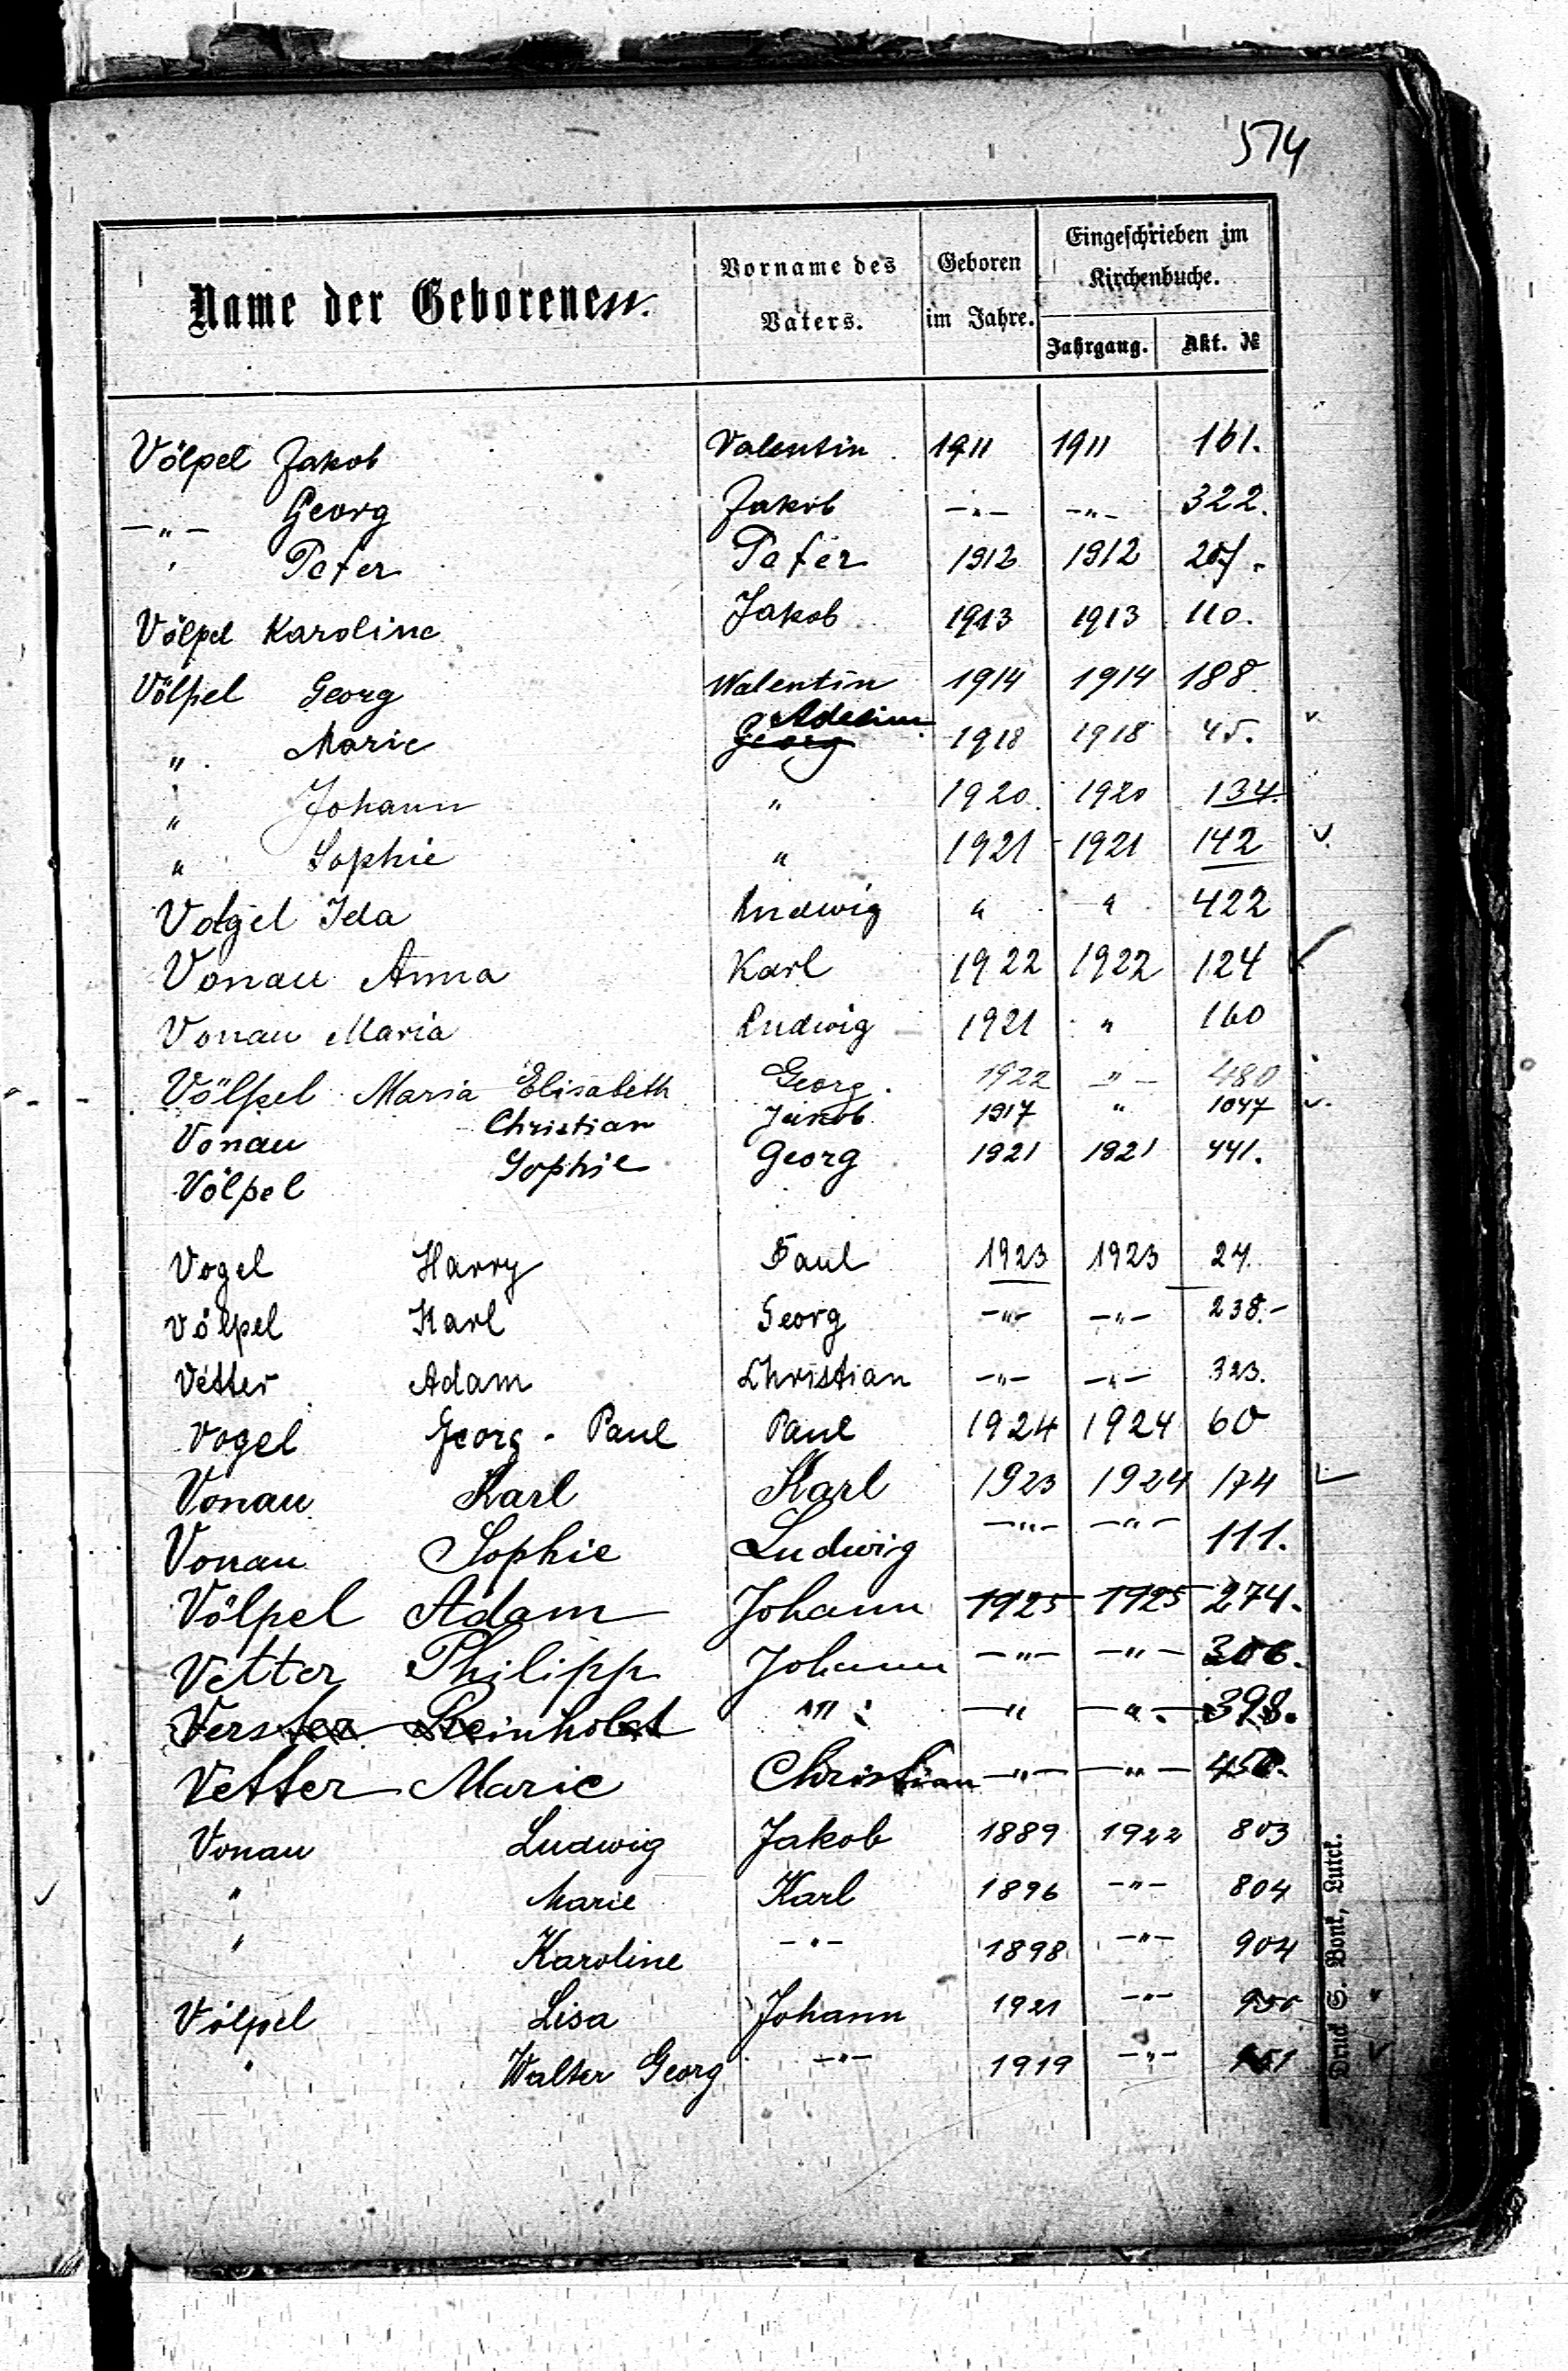 574
Name der Geborenen.
Vorname des Vaters.
Geboren im Jahre.
Eingeschrieben im Kirchenbuche.
Jahrgang. Akt. №
Völpel Jakob Valentin 1911 1911 161.
—„— Georg Jakob —„— —„— 322.
' Peter Peter 1912 1912
Völpel Karoline Jakob 1913 1913 110.
Völpel Georg Walentin 1914 1914 188.
„ Marie Georg 1918 1918 45.
„ Johann „ 1920 1920 134.
„ Sophie „ 1921 1921 142
Vogel Ida Ludwig „ „ 422
Vonau Anna Karl 1922 1922 124
Vonau Maria Ludwig 1921 „ 160
Völpel Maria Elisabeth Georg. 1922 „ — 480
Vonau Christian Jakob 1917 „ 1047
Völpel Sophie Georg 1921 1921 441.
Vogel Harry Paul 1923 1923 24.
Völpel Karl Georg —„— —„— 238.—
Vetter Adam Christian —„— —„— 323.
Vogel Georg - Paul Paul 1924 1924 60
Vonau Karl Karl 1923 1924 174
Vonau Sophie Ludwig —„— —„— 111.
Völpel Adam Johann 1925 1925 274.
Vetter Philipp Johann —„— —„— 306.
Verster Reinhold —„ —„— 398.
Vetter Marie Christian —„— —„— 450.
Vonau Ludwig Jakob 1889 1922 803
„ Marie Karl 1896 —„— 804
„ Karoline —„— 1898 —„— 904
Völpel Lisa Johann 1921 —„— 950
„ Walter Georg —„— 1919 —„—
Druck S. Bonk, Lutck.